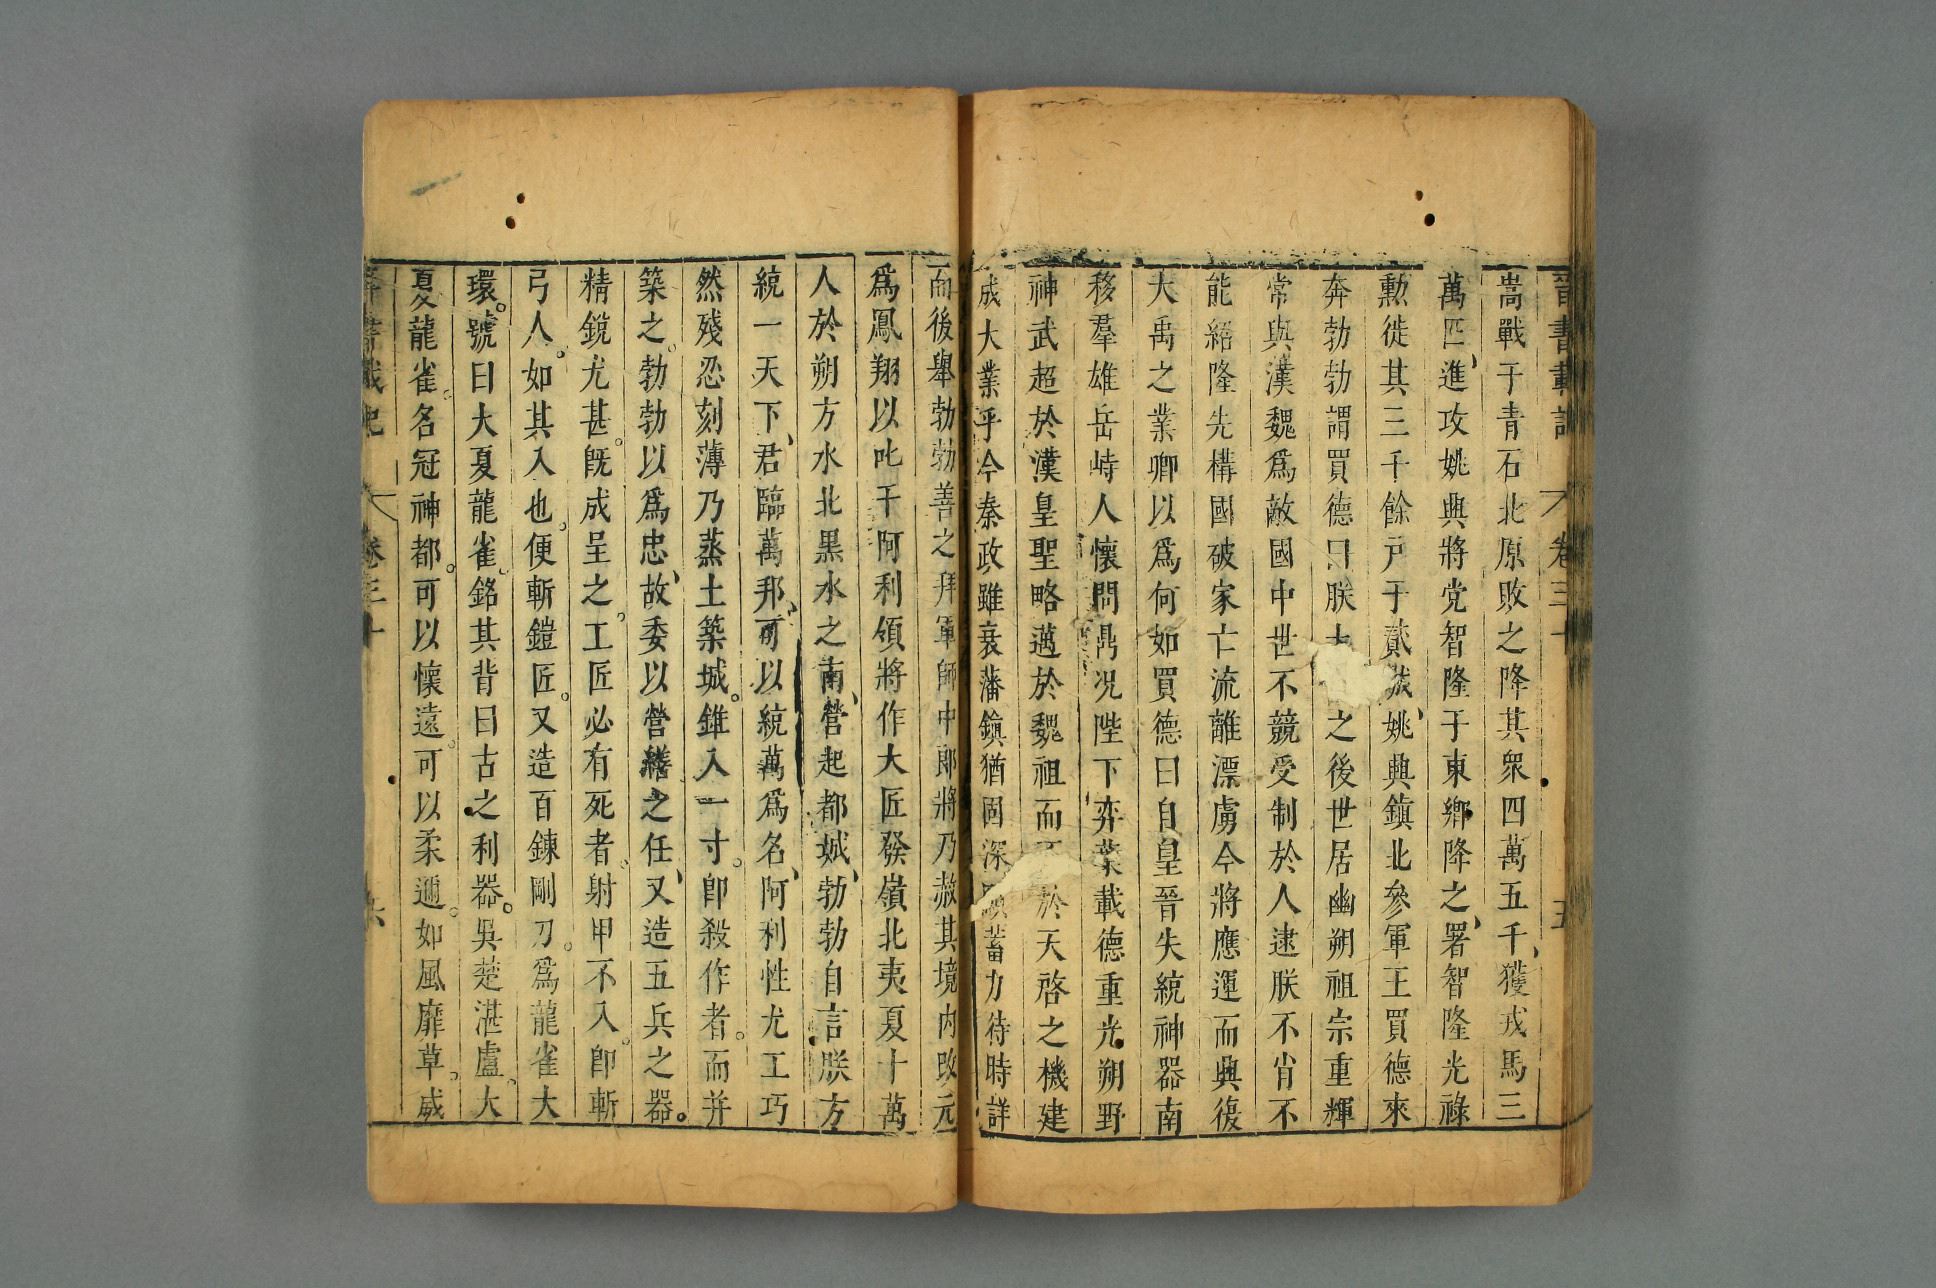 晉書載記 卷三十 五
嵩戰于青石北原敗之降其衆四萬五千獲戎馬三
萬匹進攻姚興將党智隆于東鄉降之署智隆光祿
勲徙其三千餘戶于貳城姚興鎮北參軍王買德來
奔勃勃謂買德曰朕大之後世居幽朔祖宗重輝
常與漢魏爲敵國中世不競受制於人逮朕不肖不
能紹隆先構國破家亡流離漂虜今將應運而興復
大禹之業卿以爲何如買德曰自皇晉失統神器南
移羣雄岳峙人懷問鼎况陛下弈葉載德重光朔野
神武超於漢皇聖略邁於魏祖而不於天啓之機建
成大業乎今秦政雖衰藩鎮猶固深願蓄力待時詳
而後舉勃勃善之拜軍師中郎將乃赦其境内改元
爲鳳翔以叱干阿利領將作大匠發嶺北夷夏十萬
人於朔方水北黑水之南營起都城勃勃自言朕方
統一天下君臨萬邦可以統萬爲名阿利性尤工巧
然殘忍刻薄乃蒸土築城錐入一寸卽殺作者而并
築之勃勃以爲忠故委以營繕之任又造五兵之器
精銳尤甚旣成呈之工匠必有死者射甲不入卽斬
弓人如其入也便斬鎧匠又造百鍊剛刀爲龍雀大
環號曰大夏龍雀銘其背曰古之利器吳楚湛盧大
夏龍雀名冠神都可以懷遠可以柔邇如風靡草威
載記 卷三十 六